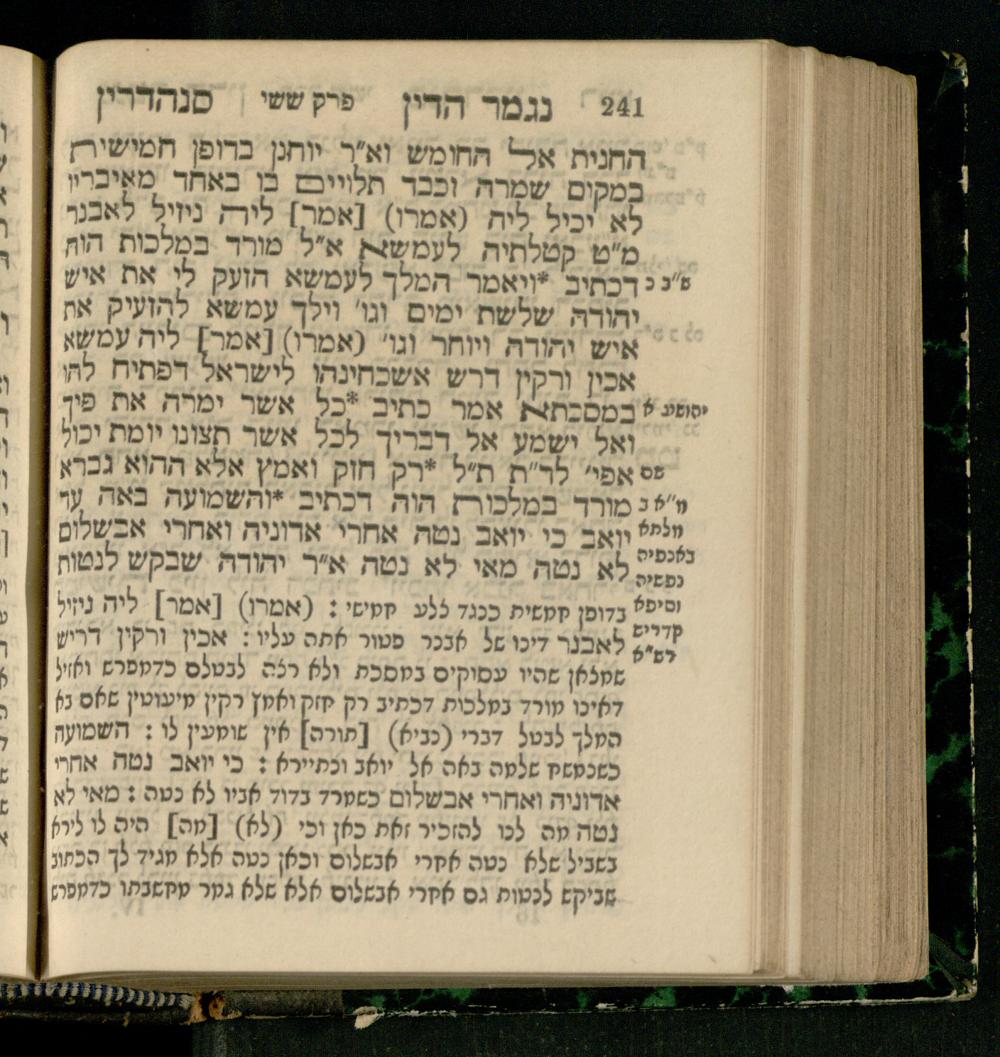 241 נגמר הדין פרק ששי סנהדרין
החנית אל החומש וא״ר יוחנן בדופן חמישית
במקום שמרה וכבד תלויים בו באחד מאיבריו
לא יכיל ליה (אמרו) [אמר] ליה ניזיל לאבנר
מ״ט קטלתיה לעמשא א״ל מורד במלכות הוה
ש״ב כ דכתיב *ויאמר המלך לעמשא הזעק לי את איש
יהודה שלשת ימים וגו׳ וילך עמשא להזעיק את
איש יהודה ויוחר וגו׳ (אמרו) [אמר] ליה עמשא
אכין ורקין דרש אשכחינהו לישראל דפתיח להו
יהושע א במסכתא אמר כתיב *כל אשר ימרה את פיך
ואל ישמע אל דבריך לכל אשר תצונו יומת יכול
שם אפי׳ לד״ת ת״ל *רק חזק ואמץ אלא ההוא גברא
מ״א ב מורד במלכות הוה דכתיב *והשמועה באה עד
מלתא יואב כי יואב נטה אחרי אדוניה ואחרי אבשלום
באנפיה
לא נטה מאי לא נטה א״ר יהודה שבקש לנטות
נפשיה
וסיפא בדופן חמשית כנגד צלע חמישי : (אמרו) [אמר] ליה ניזיל
קדריש
לאבנר דינו של אבנר פטור אתה עליו : אכין ורקין דריש
רש״א
שמצאן שהיו עסוקים במסכת ולא רצה לבטלם כדמפרש ואזיל
דאינו מורד במלכות דכתיב רק חזק ואמץ רקין מיעוטין שאם בא
המלך לבטל דברי (נביא) [תורה] אין שומעין לו : השמועה
כשנמשח שלמה באה אל יואב ונתיירא : כי יואב נטה אחרי
אדוניה ואחרי אבשלום כשמרד בדוד אביו לא נטה : מאי לא
נטה מה לנו להזכיר זאת כאן וכי (לא) [מה] היה לו לירא
בשביל שלא נטה אחרי אבשלום וכאן נטה אלא מגיד לך הכתוב
שביקש לנטות גם אחרי אבשלום אלא שלא גמר מחשבתו כדמפרש